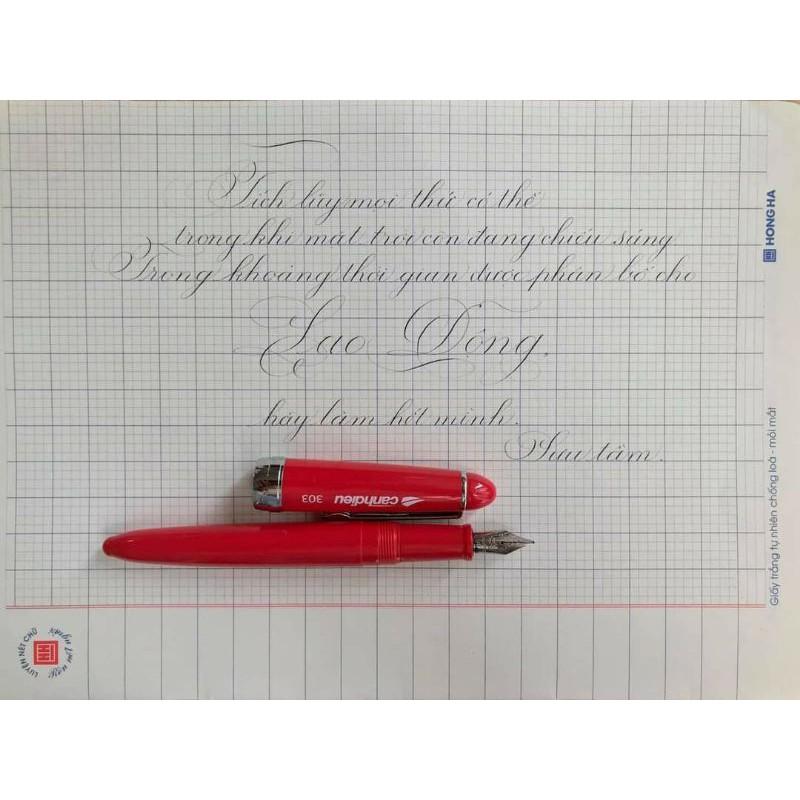 Tích lũy mọi thứ có thể
trong khi mặt trời còn đang chiếu sáng
Trong khoảng thời gian được phân bổ cho
Lao Động,
hãy làm hết mình.
Sưu tầm.
canhdieu
303
HONG HA
Giấy trắng tự nhiên chống loá - mỏi mắt
LUYỆN NÉT CHỮ
Rèn nết người